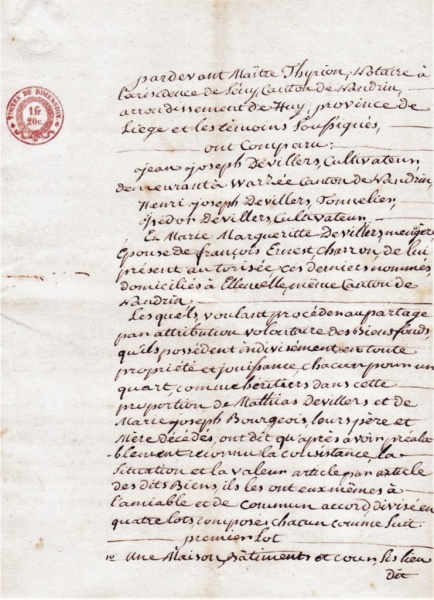 pardevant Maître Thyrion, Notaire à
la résidence de Seny, Canton de Nandrin,
arrondissement de Huy, province de
Liège et les témoins Soussignés,
ont Comparu:
Jean joseph Devillers, Cultivateur,
demeurant à Warzée Canton de Nandrin,
Henri joseph Devillers, Tonnelier,
Isidor Devillers, Cultivateur,
Et Marie Margueritte Devillers, menagère
Epouse de françois Ernest, charron, de lui
présent autorisée ces derniers nommés
domiciliés à Ellemelle, même Canton de
Nandrin
Lesquels, voulant procéder au partage
par attribution volontaire des Biens fonds,
qu'ils possédent indivisément en toute
propriété et jouissance, chacun pour un
quart comme héritiers dans cette
proportion de Mathias Devillers et de
Marie joseph Bourgeois, leurs père et
Mère décédés, ont dit qu'après avoir préala
-blement reconnu la consistance, la
Situation et la valeur article par article
des dits Biens, ils les ont eux mêmes à
l'amiable et de commun accord divisé en
quatre lots, composés chacun comme Suit.
premier Lot
1º Une Maison, Bâtiments et cour, Sis lieu
dit
TIMBRE DE DIMENSION
1fr
20c